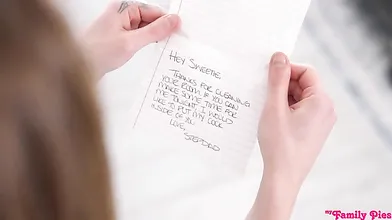 HEY SWEETIE
THANKS FOR CLEANING
YOUR ROOM. IF YOU CAN
MAKE SOME TIME FOR
ME TONIGHT, I WOULD
LIKE TO PUT MY COCK
INSIDE OF YOU
LOVE,
STEP-DAD
MY Family Pies